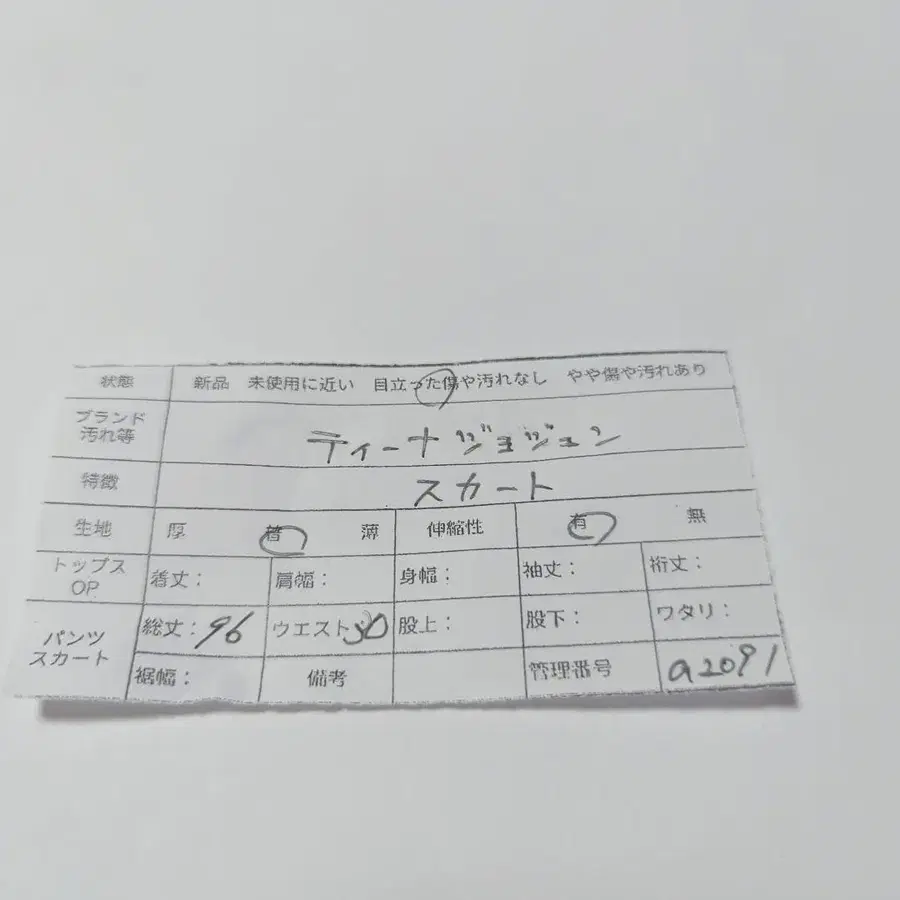 状態 新品 未使用に近い 目立った傷や汚れなし やや傷や汚れあり
ブランド
汚れ等 ティーナジョジョン
特徴 スカート
生地 厚 普 薄 伸縮性 有 無
トップス
OP 着丈: 肩幅: 身幅: 袖丈: 裄丈:
パンツ
スカート 総丈:96 ウエスト 股上: 股下: ワタリ:
裾幅: 備考 管理番号 a2091